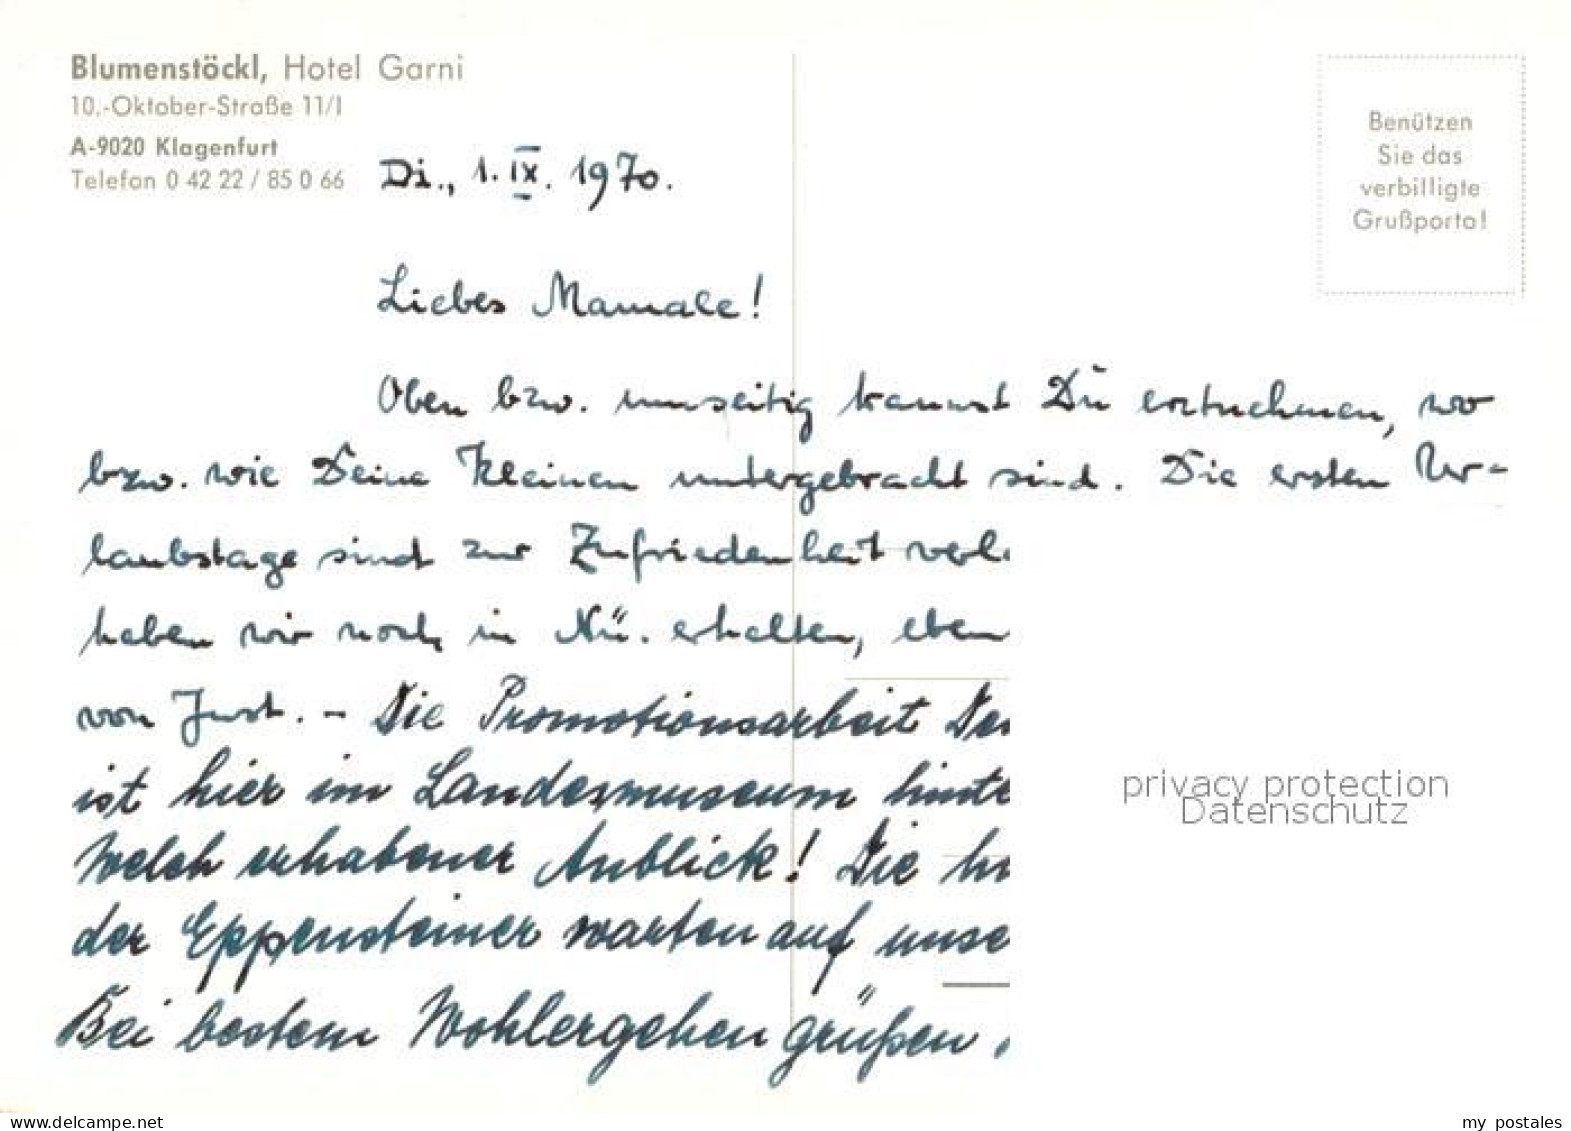 Blumenstöckl, Hotel Garni
10.-Oktober-Straße 11/I
A-9020 Klagenfurt
Telefon 0 42 22 / 85 0 66
Benützen
Sie das
verbilligte
Grußporto!
Di., 1. IX. 1970.
Liebes Mamale!
Oben bzw. umseitig kannst Du entnehmen, wo
bzw. wie Deine Kleinen untergebracht sind. Die ersten Ur-
laubstage sind zur Zufriedenheit verl
haben wir noch in Nü. erhalten, eben
von Just. - Die Promotionsarbeit
ist hier im Landesmuseum hinte
Welch erhabener Anblick! Die
der Eppensteiner warten auf unse
Bei bestem Wohlergehen grüßen
privacy protection
Datenschutz
delcampe.net
my_postales